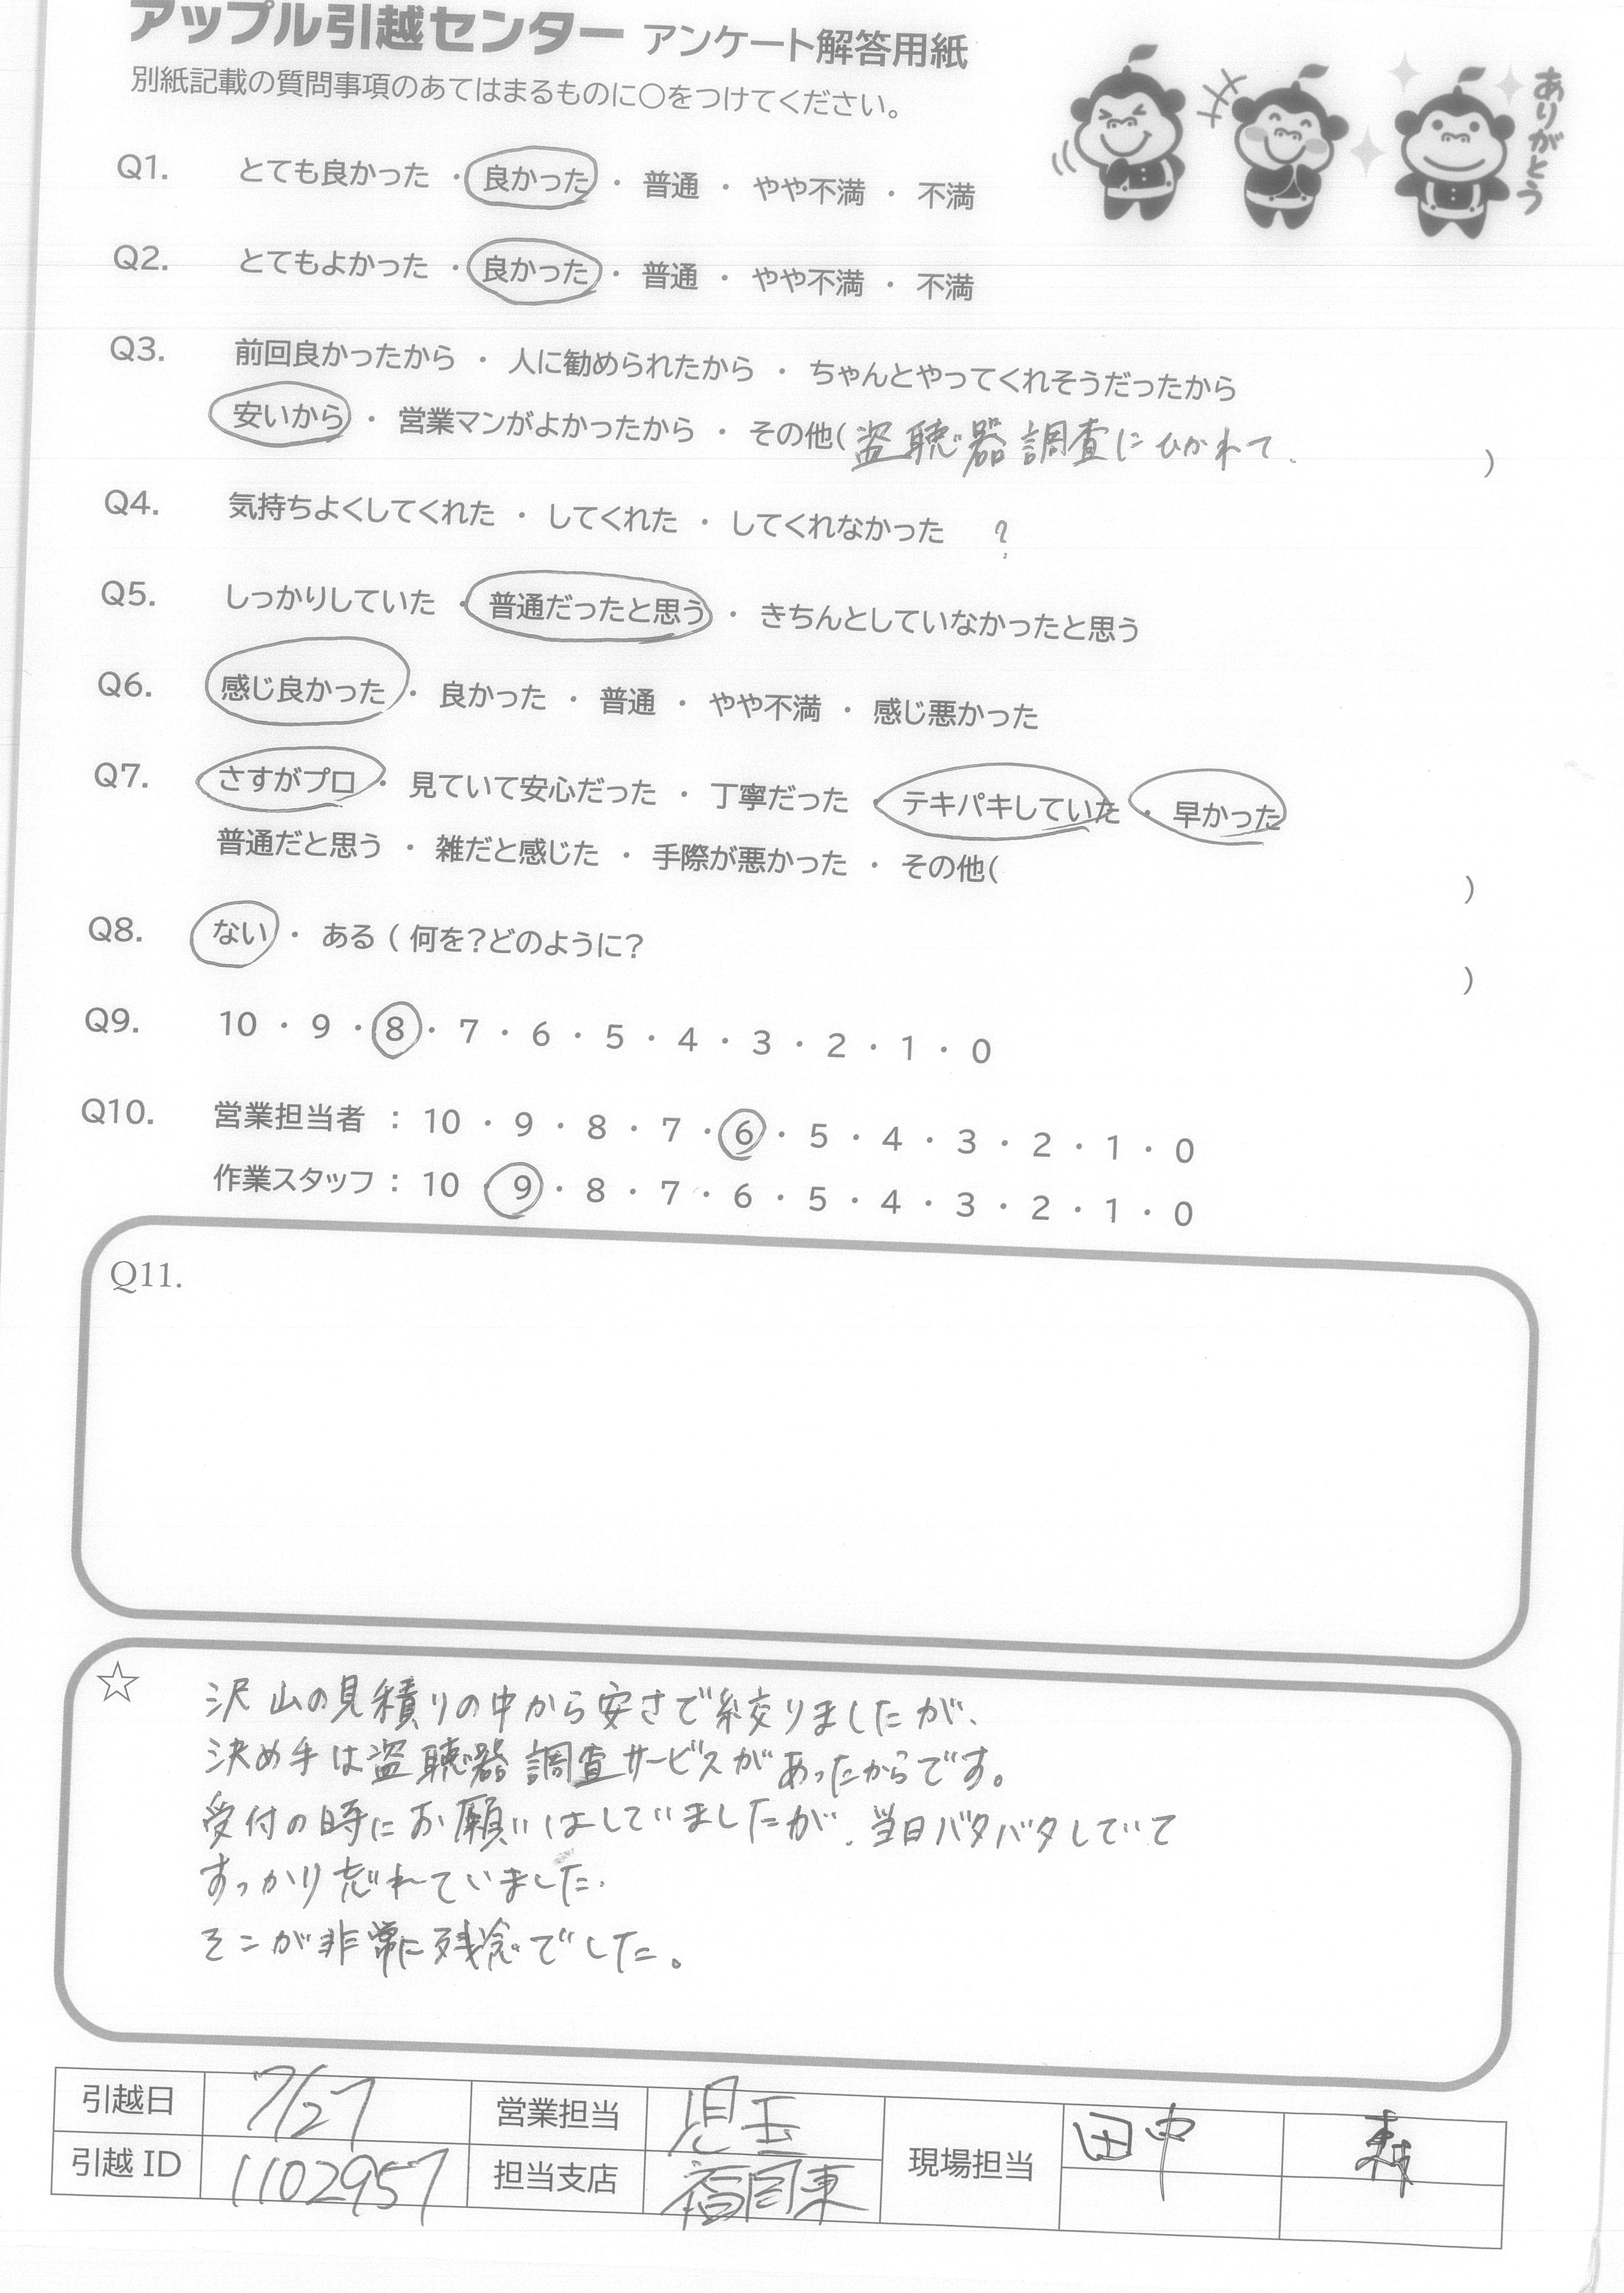 アップル引越センター アンケート解答用紙
別紙記載の質問事項のあてはまるものに○をつけてください。
ありがとう
Q1. とても良かった ・ 良かった ・ 普通 ・ やや不満 ・ 不満
Q2. とてもよかった ・ 良かった ・ 普通 ・ やや不満 ・ 不満
Q3. 前回良かったから ・ 人に勧められたから ・ ちゃんとやってくれそうだったから
安いから ・ 営業マンがよかったから ・ その他( 盗聴器調査にひかれて. )
Q4. 気持ちよくしてくれた ・ してくれた ・ してくれなかった ?
Q5. しっかりしていた ・ 普通だったと思う ・ きちんとしていなかったと思う
Q6. 感じ良かった ・ 良かった ・ 普通 ・ やや不満 ・ 感じ悪かった
Q7. さすがプロ ・ 見ていて安心だった ・ 丁寧だった ・ テキパキしていた ・ 早かった
普通だと思う ・ 雑だと感じた ・ 手際が悪かった ・ その他( )
Q8. ない ・ ある ( 何を?どのように? )
Q9. 10 ・ 9 ・ 8 ・ 7 ・ 6 ・ 5 ・ 4 ・ 3 ・ 2 ・ 1 ・ 0
Q10. 営業担当者 : 10 ・ 9 ・ 8 ・ 7 ・ 6 ・ 5 ・ 4 ・ 3 ・ 2 ・ 1 ・ 0
作業スタッフ : 10 ・ 9 ・ 8 ・ 7 ・ 6 ・ 5 ・ 4 ・ 3 ・ 2 ・ 1 ・ 0
Q11.
☆ 沢山の見積りの中から安さで絞りましたが、
決め手は盗聴器調査サービスがあったからです。
受付の時にお願いはしていましたが、当日バタバタしていて
すっかり忘れていました.
そこが非常に残念でした。
引越日 7/27 営業担当 児玉 現場担当 田中 森
引越 ID 1102957 担当支店 福岡東